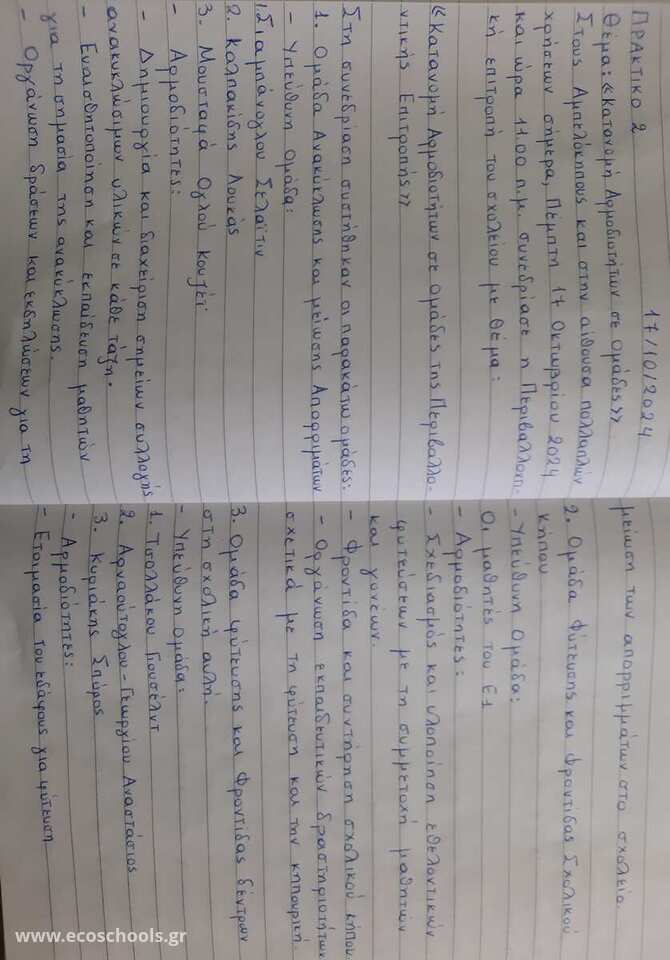 17/10/2024
ΠΡΑΚΤΙΚΟ 2
Θέμα: «Κατανομή Αρμοδιοτήτων σε Ομάδες»
Στους Αμπελόκηπους και στην αίθουσα πολλαπλών
χρήσεων σήμερα, Πέμπτη 17 Οκτωβρίου 2024
και ώρα 11.00 π.μ. συνεδρίασε η Περιβαλλοντι-
κή επιτροπή του σχολείου με θέμα:
«Κατανομή Αρμοδιοτήτων σε Ομάδες της Περιβαλλο-
ντικής Επιτροπής»
Στη συνεδρίαση συστήθηκαν οι παρακάτω ομάδες:
1. Ομάδα Ανακύκλωσης και μείωσης Απορριμάτων
- Υπεύθυνη Ομάδα:
1. Σιαμπάνογλου Σελαϊτίν
2. Καλπακίδης Λουκάς
3. Μουσταφά Ογλού Κουζέϊ
- Αρμοδιότητες:
- Δημιουργία και διαχείριση σημείων συλλογής
ανακυκλώσιμων υλικών σε κάθε τάξη.
- Ευαισθητοποίηση και εκπαίδευση μαθητών
για τη σημασία της ανακύκλωσης.
- Οργάνωση δράσεων και εκδηλώσεων για τη
μείωση των απορριμμάτων στο σχολείο.
2. Ομάδα Φύτευσης και Φροντίδας Σχολικού
Κήπου
- Υπεύθυνη Ομάδα:
Οι μαθητές του Ε1
- Αρμοδιότητες:
- Σχεδιασμός και υλοποίηση εθελοντικών
φυτεύσεων με τη συμμετοχή μαθητών
και γονέων.
- Φροντίδα και συντήρηση σχολικού κήπου
- Οργάνωση εκπαιδευτικών δραστηριοτήτων
σχετικά με τη φύτευση και την κηπουρική.
3. Ομάδα φύτευσης και Φροντίδας δέντρων
στη σχολική αυλή.
- Υπεύθυνη Ομάδα:
1. Τσολλάκου Γιουσέλντ
2. Αρναούτογλου - Γεωργίου Αναστάσιος
3. Κυριάκης Σπύρος
- Αρμοδιότητες:
- Ετοιμασία του εδάφους για φύτευση
www.ecoschools.gr